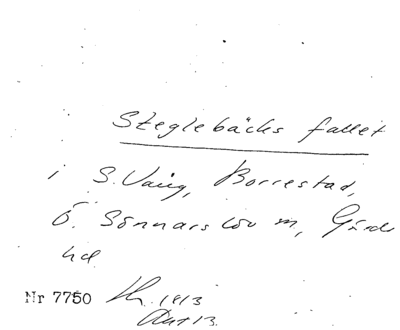 Steglebäcks fallet
i S. Vång, Borrestad,
Ö. Sönnarslöv m, Gärds
hd
Nr 7750 Th. 1913